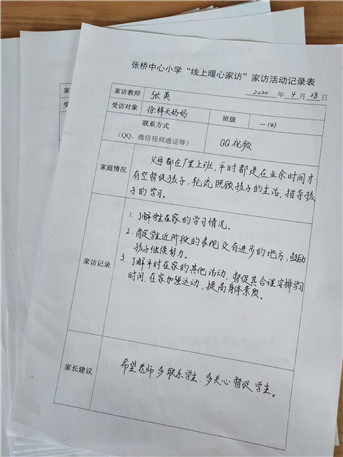 张桥中心小学“线上暖心家访”家访活动记录表
2020 年 4 月 28 日
家访教师 张美
受访对象 徐梓天妈妈 班级 一(4)
联系方式
(QQ、微信视频通话等) QQ视频
家庭情况
父母都在厂里上班,平时都是在业余时间才
有空督促孩子,轮流照顾孩子的生活,指导孩
子的学习。
家访记录
1. 了解学生在家的学习情况。
2. 肯定学生近阶段的表现,又有进步的地方,鼓励
孩子继续努力。
3. 了解平时在家的其他活动,督促其合理安排学习
时间,在家加强运动,提高身体素质。
家长建议
希望老师多联系学生,多关心督促学生。